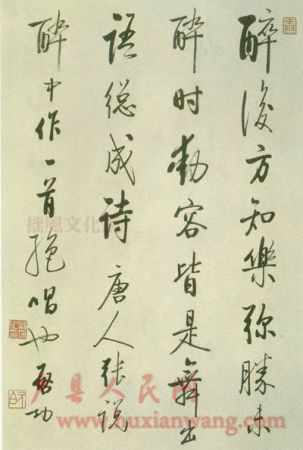 醉後方知樂弥勝未
醉时動容皆是舞出
語総成诗唐人张說
醉中作一首絶唱也啓功
揣風文化
户县人民網
www.huxianwang.com